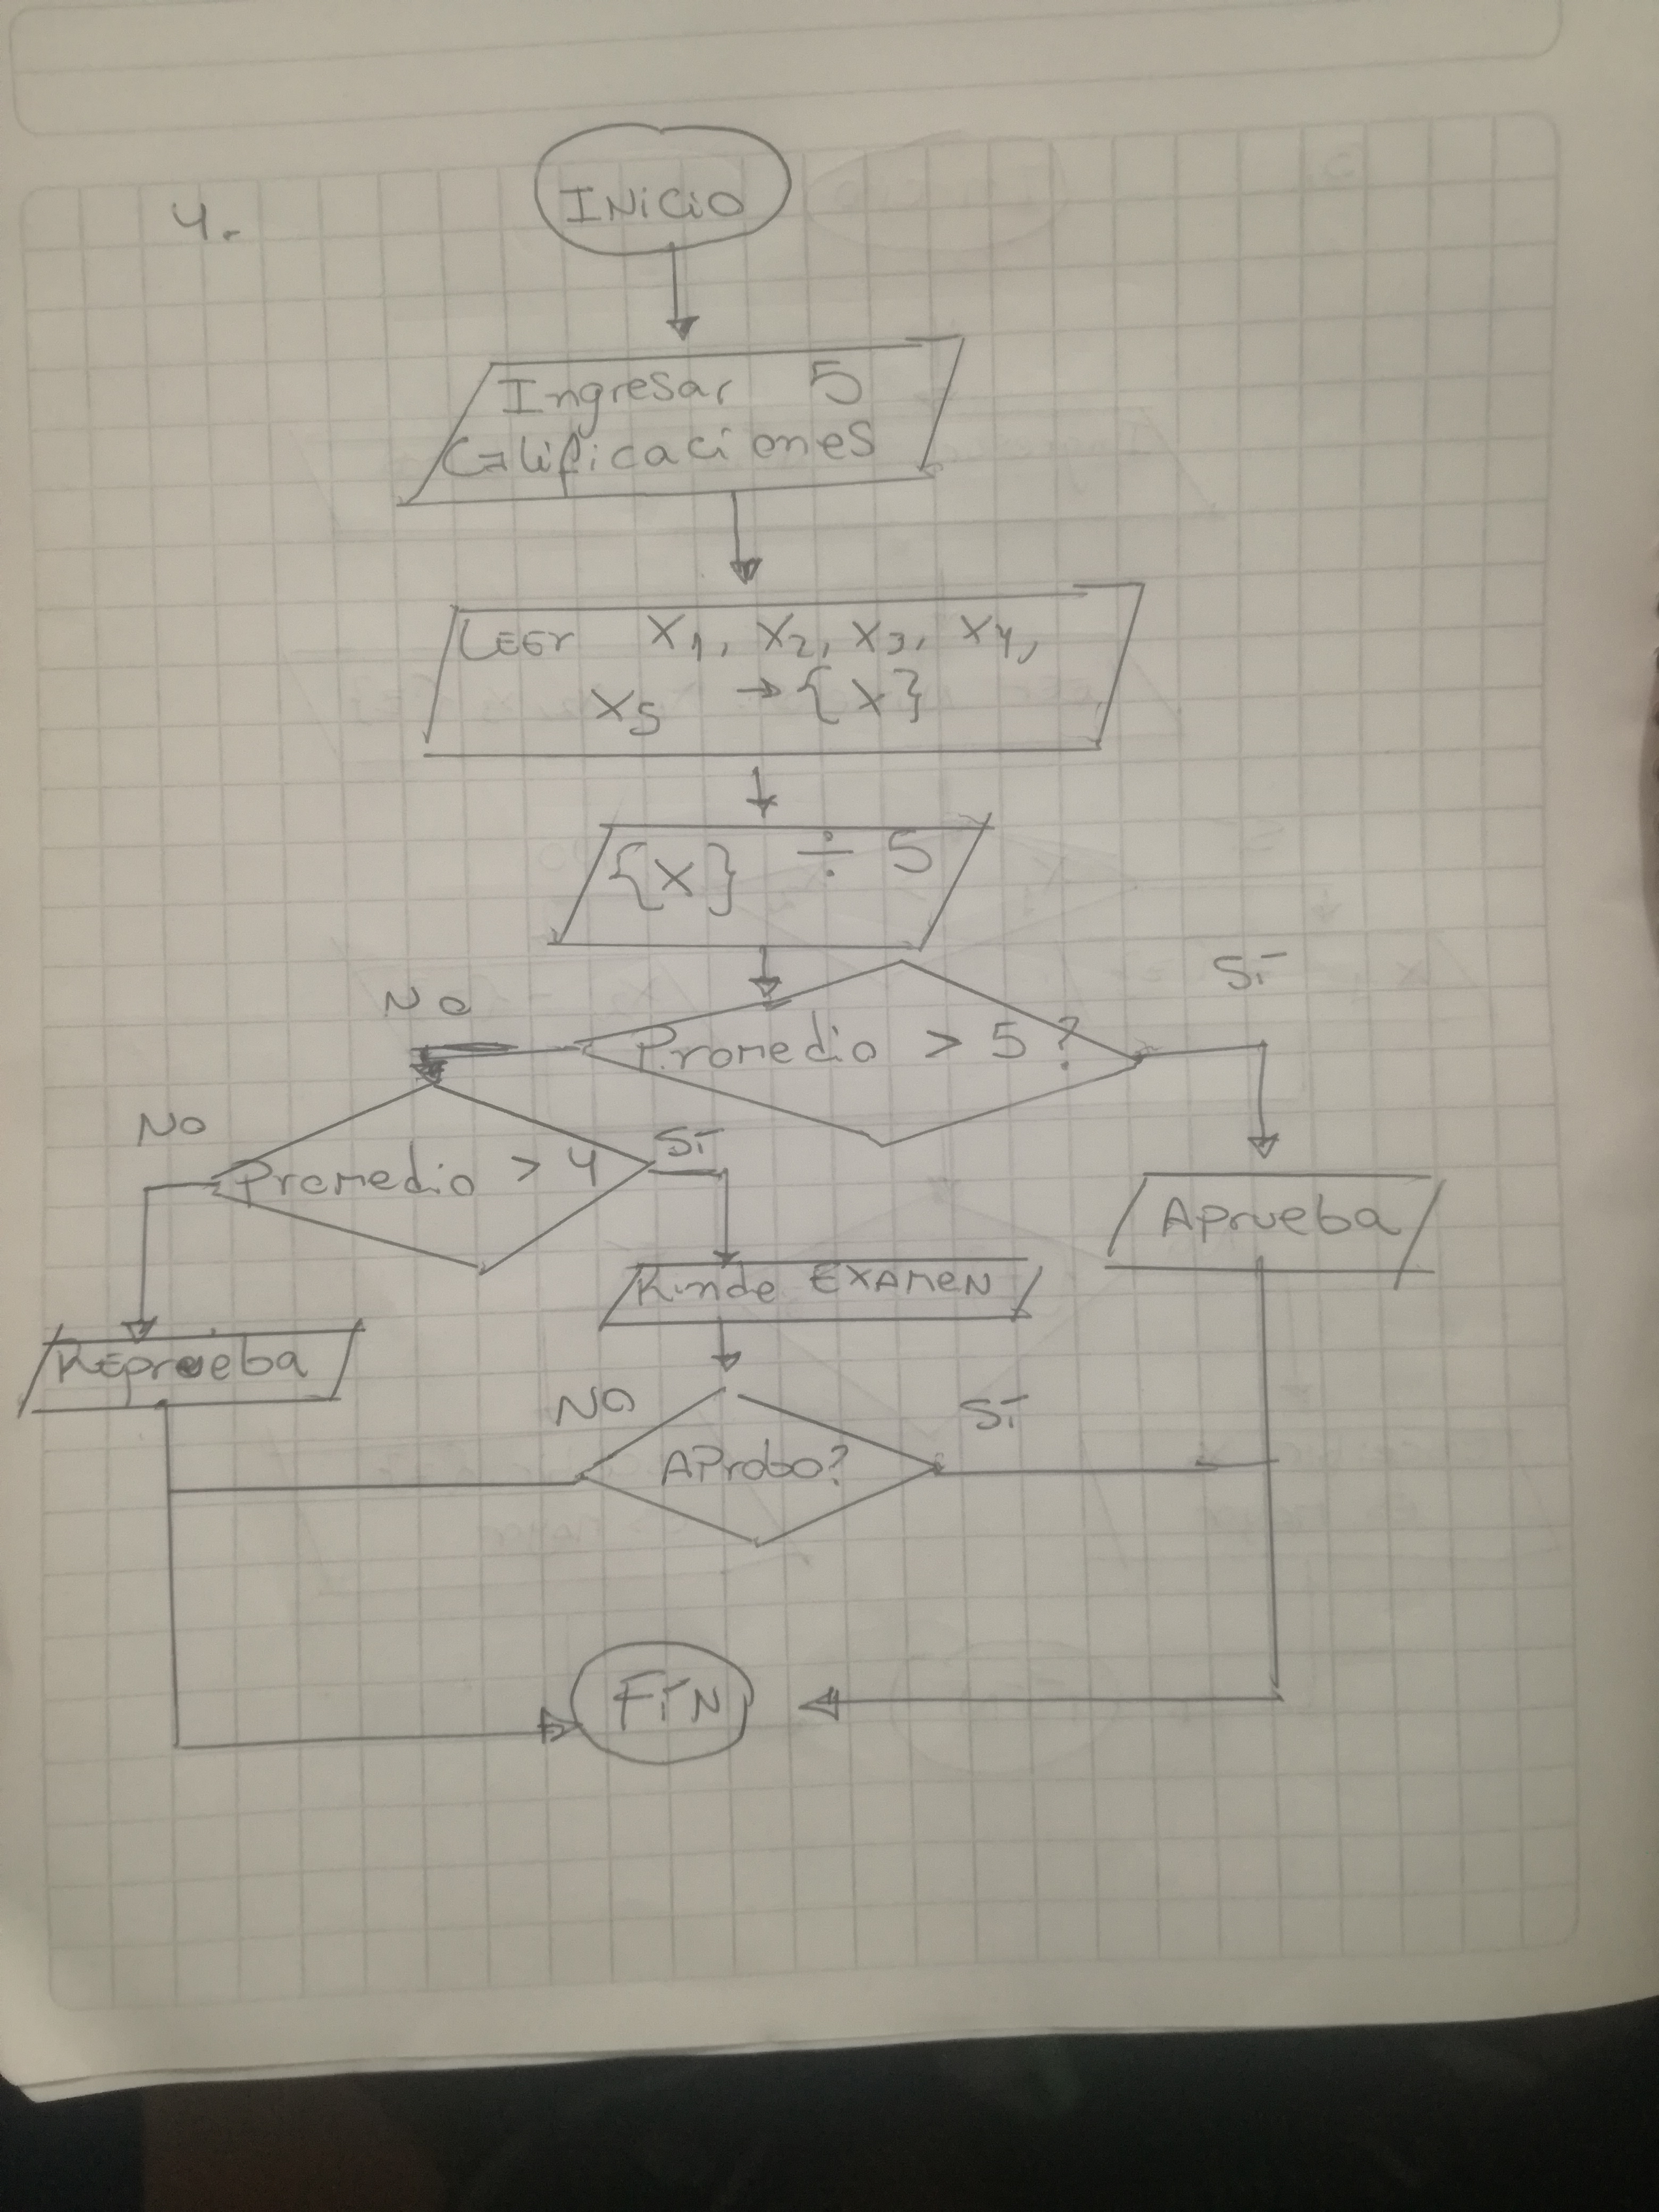 4.
INICIO
Ingresar 5
Calificaciones
LEEr X1, X2, X3, X4,
X5 → {X}
{X} ÷ 5
NO
SI
Promedio > 5 ?
NO
SI
Promedio > 4
Aprueba
Rinde EXAMEN
REprueba
NO
SI
AProbo?
FIN